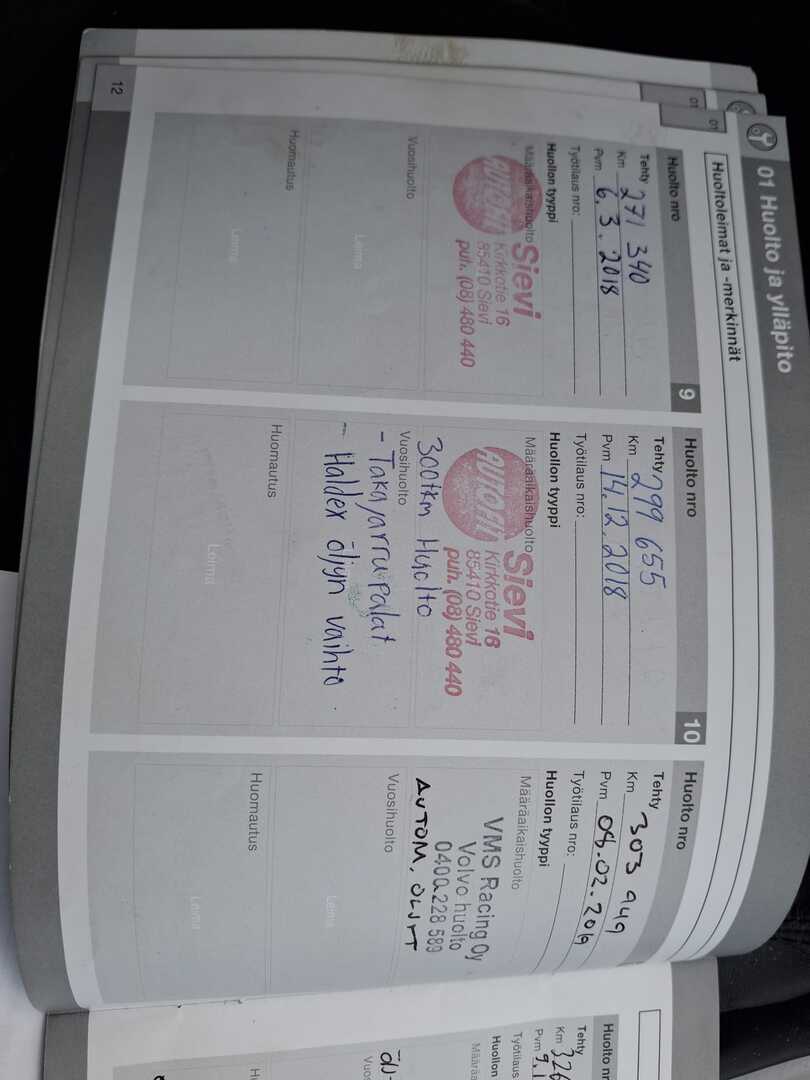 01 Huolto ja ylläpito
Huoltoleimat ja -merkinnät
01
01
Huolto nro
9
Tehty
Km 271 340
Pvm 6.3.2018
Työtilaus nro:
Huollon tyyppi
Määräaikaishuolto
AUTOFIT
Sievi
Kirkkotie 16
85410 Sievi
puh. (08) 480 440
Vuosihuolto
Leima
Huomautus
Leima
Huolto nro
10
Tehty
Km 299 655
Pvm 14.12.2018
Työtilaus nro:
Huollon tyyppi
Määräaikaishuolto
Sievi
Kirkkotie 16
85410 Sievi
puh. (08) 480 440
300tkm Huolto
Vuosihuolto
- Takajarrupalat
- Haldex öljyn vaihto.
Huomautus
Leima
Huolto nro
Tehty
Km 303 949
Pvm 08.02.2019
Työtilaus nro:
Huollon tyyppi
Määräaikaishuolto
VMS Racing Oy
Volvo huolto
0400 228 589
AUTOM, ÖLJYT
Vuosihuolto
Leima
Huomautus
Leima
12
Huolto nr
Tehty
Km 326
Pvm 9.1
Työtilaus
Huollon
Määräa
Vuos
Hu